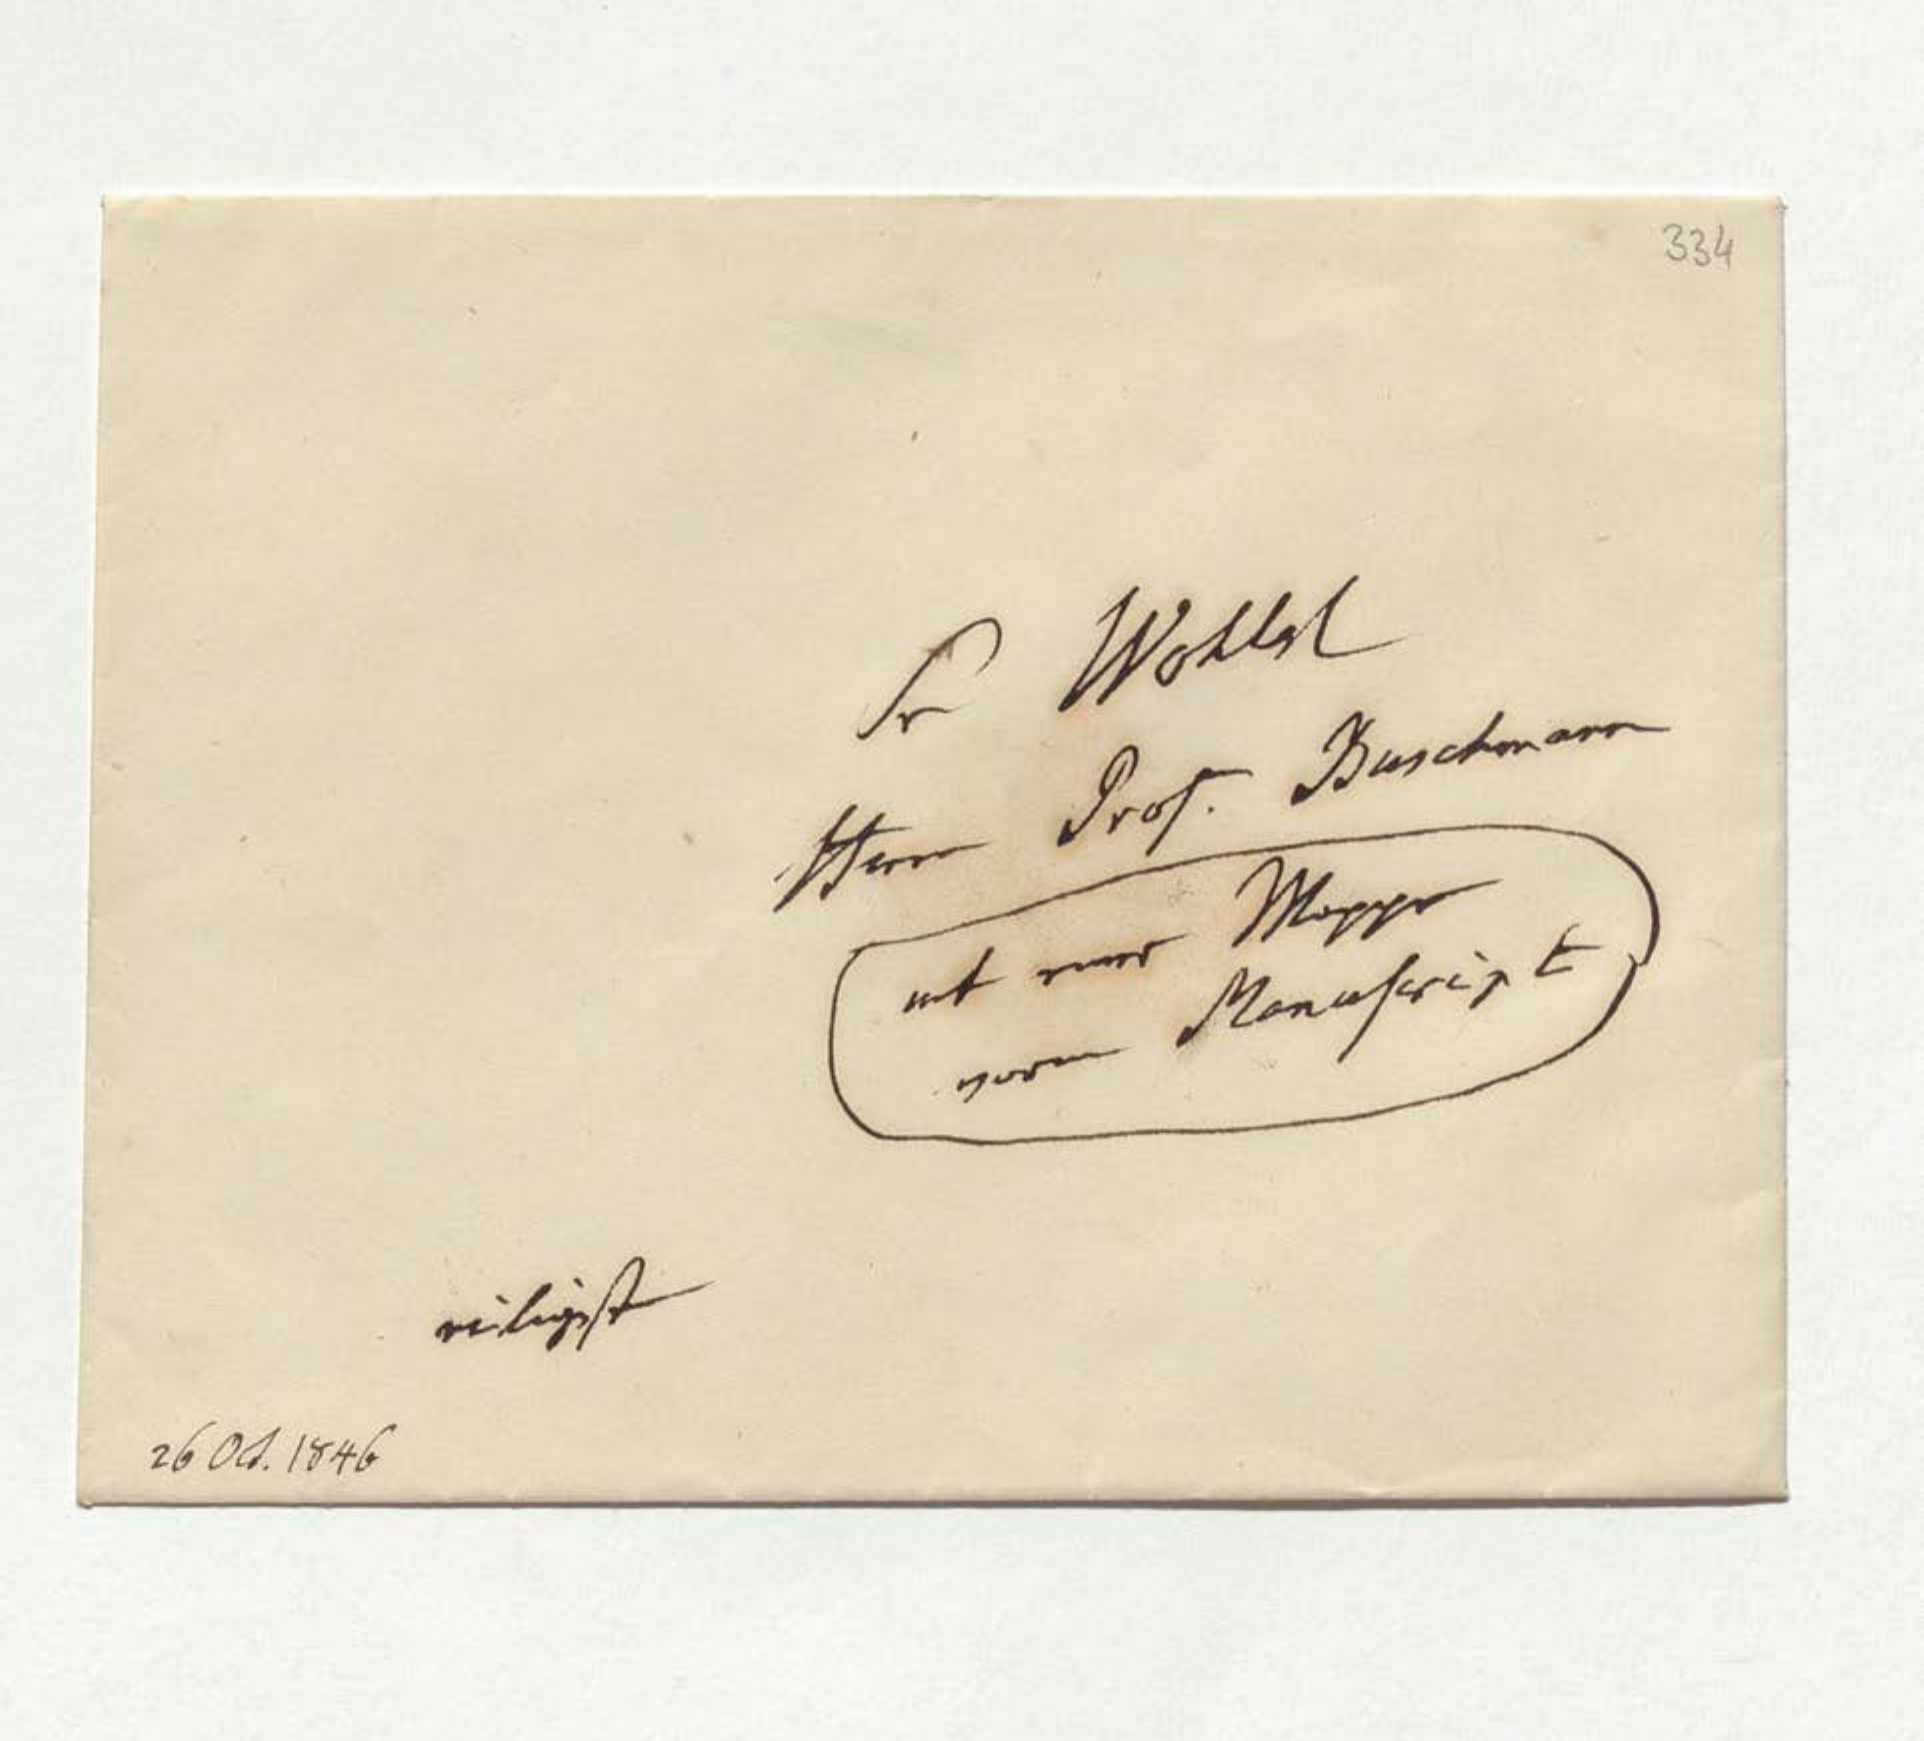 334
Sr Wohlgl
Herrn Prof. Buschmann
mit einer Mappe
Manuscript
eiligst
26 Oct. 1846